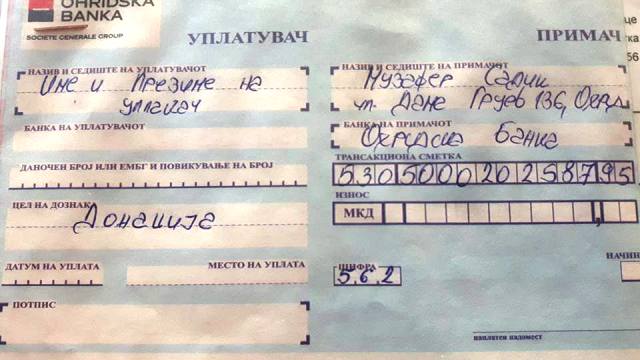 OHRIDSKA
BANKA
SOCIETE GENERALE GROUP
УПЛАТУВАЧ
НАЗИВ И СЕДИШТЕ НА УПЛАТУВАЧОТ
Име и Презиме на
уплаќач
БАНКА НА УПЛАТУВАЧОТ
ДАНОЧЕН БРОЈ ИЛИ ЕМБГ И ПОВИКУВАЊЕ НА БРОЈ
ЦЕЛ НА ДОЗНАК
Донација
ДАТУМ НА УПЛАТА
МЕСТО НА УПЛАТА
ПОТПИС
ПРИМАЧ
НАЗИВ И СЕДИШТЕ НА ПРИМАЧОТ
Музафер Салии
ул. Даме Груев 136, Охрид
БАНКА НА ПРИМАЧОТ
Охридска Банка
ТРАНСАКЦИОНА СМЕТКА
530500020258795
ИЗНОС
МКД
ШИФРА
562
НАЧИН
наплатен надомест